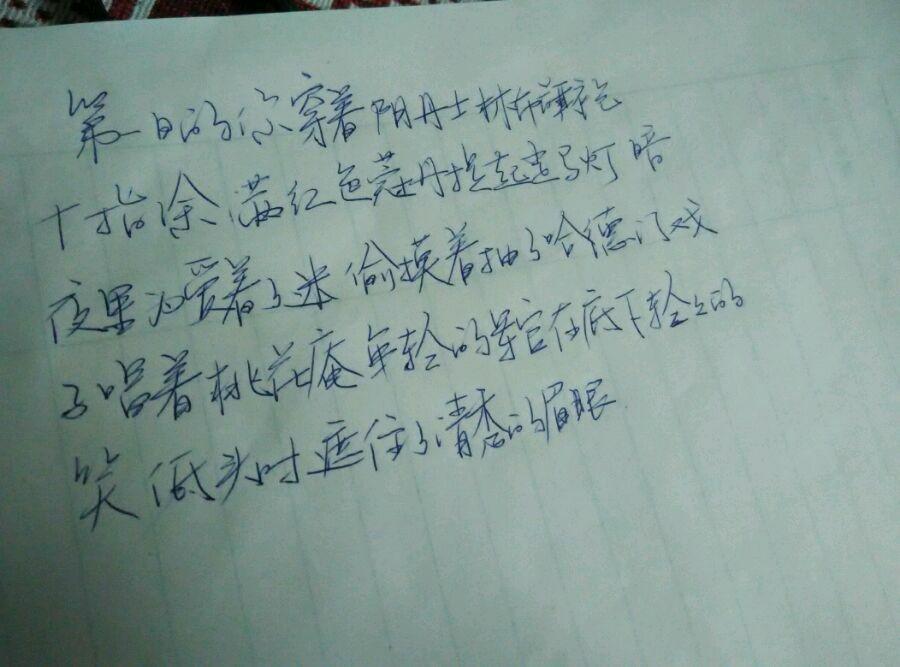 第一日的你穿着阴丹士林布旗袍
十指涂满红色蔻丹提起走马灯 暗
夜里 爱着了迷 偷摸着抽了哈德门 戏
子唱着桃花庵 年轻的军官在底下轻轻的
笑 低头时遮住了清秀的眉眼